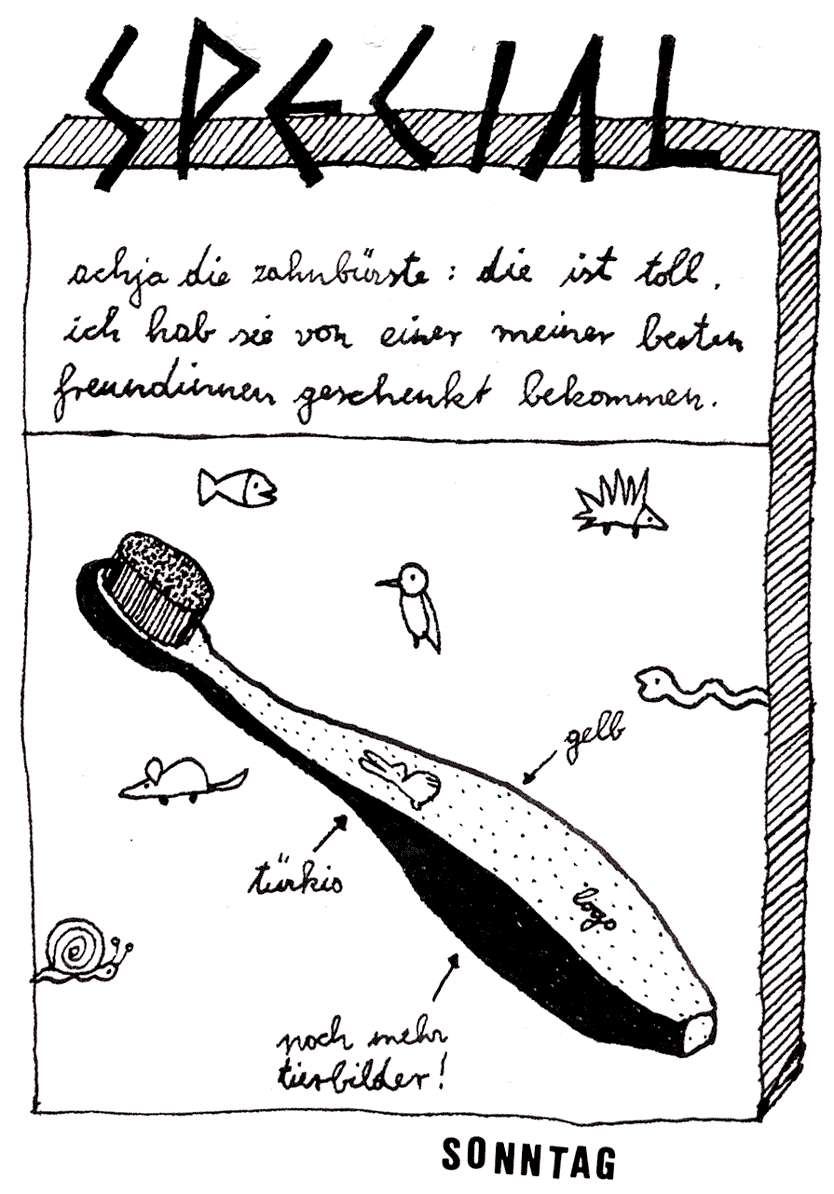 SPECIAL
achja die zahnbürste : die ist toll.
ich hab sie von einer meiner besten
freundinnen geschenkt bekommen.
gelb
türkis
logo
noch mehr
tierbilder!
SONNTAG